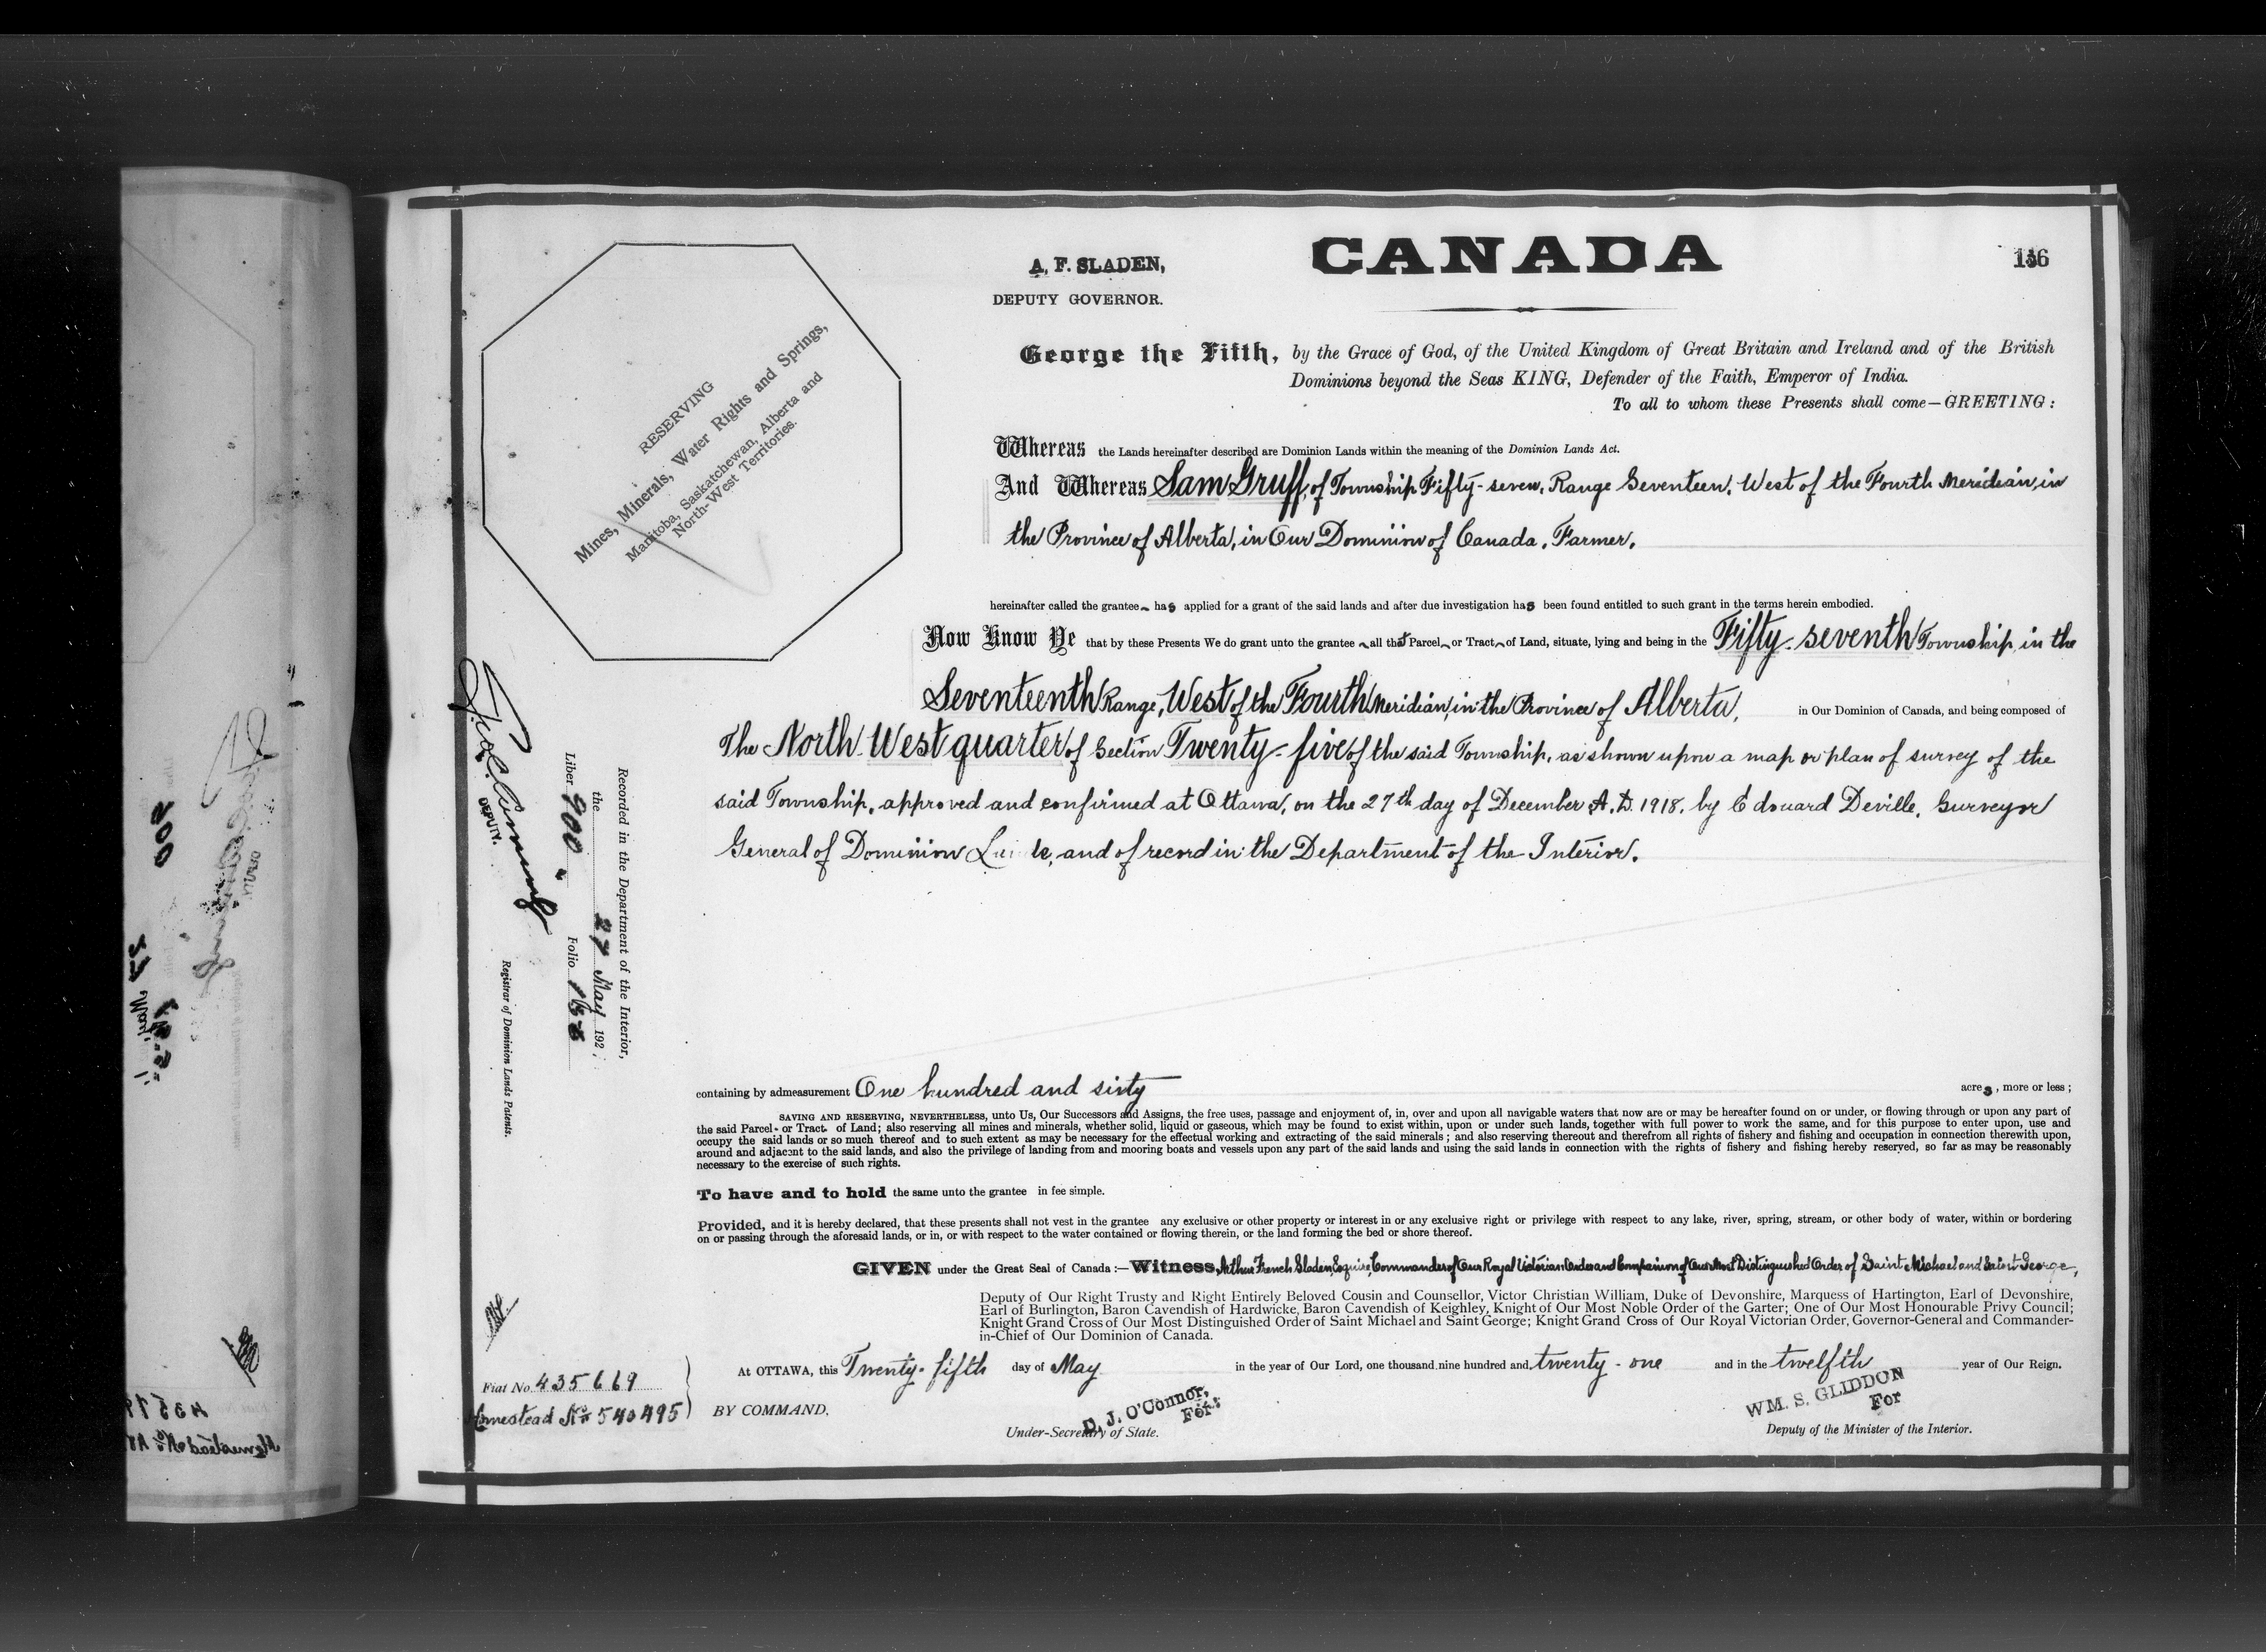 A. F. SLADEN,
DEPUTY GOVERNOR.
CANADA
136
RESERVING
Mines, Minerals, Water Rights and Springs,
Manitoba, Saskatchewan, Alberta and
North-West Territories.
George the Fifth, by the Grace of God, of the United Kingdom of Great Britain and Ireland and of the British
Dominions beyond the Seas KING, Defender of the Faith, Emperor of India.
To all to whom these Presents shall come—GREETING:
Whereas the Lands hereinafter described are Dominion Lands within the meaning of the Dominion Lands Act.
And Whereas Sam Gruff, of Township Fifty-seven, Range Seventeen, West of the Fourth Meridian, in
the Province of Alberta, in Our Dominion of Canada, Farmer,
hereinafter called the grantee has applied for a grant of the said lands and after due investigation has been found entitled to such grant in the terms herein embodied.
Now Know Ye that by these Presents We do grant unto the grantee all that Parcel or Tract of Land, situate, lying and being in the Fifty-seventh Township, in the
Seventeenth Range, West of the Fourth Meridian, in the Province of Alberta, in Our Dominion of Canada, and being composed of
The North West quarter of Section Twenty-five of the said Township, as shown upon a map or plan of survey of the
said Township, approved and confirmed at Ottawa, on the 27th day of December A.D. 1918, by Edouard Deville, Surveyor
General of Dominion and of record in the Department of the Interior.
Recorded in the Department of the Interior,
the 27 May 192
Liber 900
Folio
DEPUTY.
Registrar of Dominion Lands Patents.
containing by admeasurement One hundred and sixty acres, more or less;
SAVING AND RESERVING, NEVERTHELESS, unto Us, Our Successors and Assigns, the free uses, passage and enjoyment of, in, over and upon all navigable waters that now are or may be hereafter found on or under, or flowing through or upon any part of
the said Parcel or Tract of Land; also reserving all mines and minerals, whether solid, liquid or gaseous, which may be found to exist within, upon or under such lands, together with full power to work the same, and for this purpose to enter upon, use and
occupy the said lands or so much thereof and to such extent as may be necessary for the effectual working and extracting of the said minerals; and also reserving thereout and therefrom all rights of fishery and fishing and occupation in connection therewith upon,
around and adjacent to the said lands, and also the privilege of landing from and mooring boats and vessels upon any part of the said lands and using the said lands in connection with the rights of fishery and fishing hereby reserved, so far as may be reasonably
necessary to the exercise of such rights.
To have and to hold the same unto the grantee in fee simple.
Provided, and it is hereby declared, that these presents shall not vest in the grantee any exclusive or other property or interest in or any exclusive right or privilege with respect to any lake, river, spring, stream, or other body of water, within or bordering
on or passing through the aforesaid lands, or in, or with respect to the water contained or flowing therein, or the land forming the bed or shore thereof.
GIVEN under the Great Seal of Canada:—Witness, Arthur French Sladen, Esquire, Commander of Our Royal Victorian Order and Companion of Our Most Distinguished Order of Saint Michael and Saint George,
Deputy of Our Right Trusty and Right Entirely Beloved Cousin and Counsellor, Victor Christian William, Duke of Devonshire, Marquess of Hartington, Earl of Devonshire,
Earl of Burlington, Baron Cavendish of Hardwicke, Baron Cavendish of Keighley, Knight of Our Most Noble Order of the Garter; One of Our Most Honourable Privy Council;
Knight Grand Cross of Our Most Distinguished Order of Saint Michael and Saint George; Knight Grand Cross of Our Royal Victorian Order, Governor-General and Commander-
in-Chief of Our Dominion of Canada.
At OTTAWA, this Twenty-fifth day of May in the year of Our Lord, one thousand nine hundred and twenty-one and in the twelfth year of Our Reign.
Fiat No. 435669
Homestead No. 540495
BY COMMAND.
D. J. O'Connor,
For:
Under-Secretary of State.
WM. S. GLIDDON
For
Deputy of the Minister of the Interior.